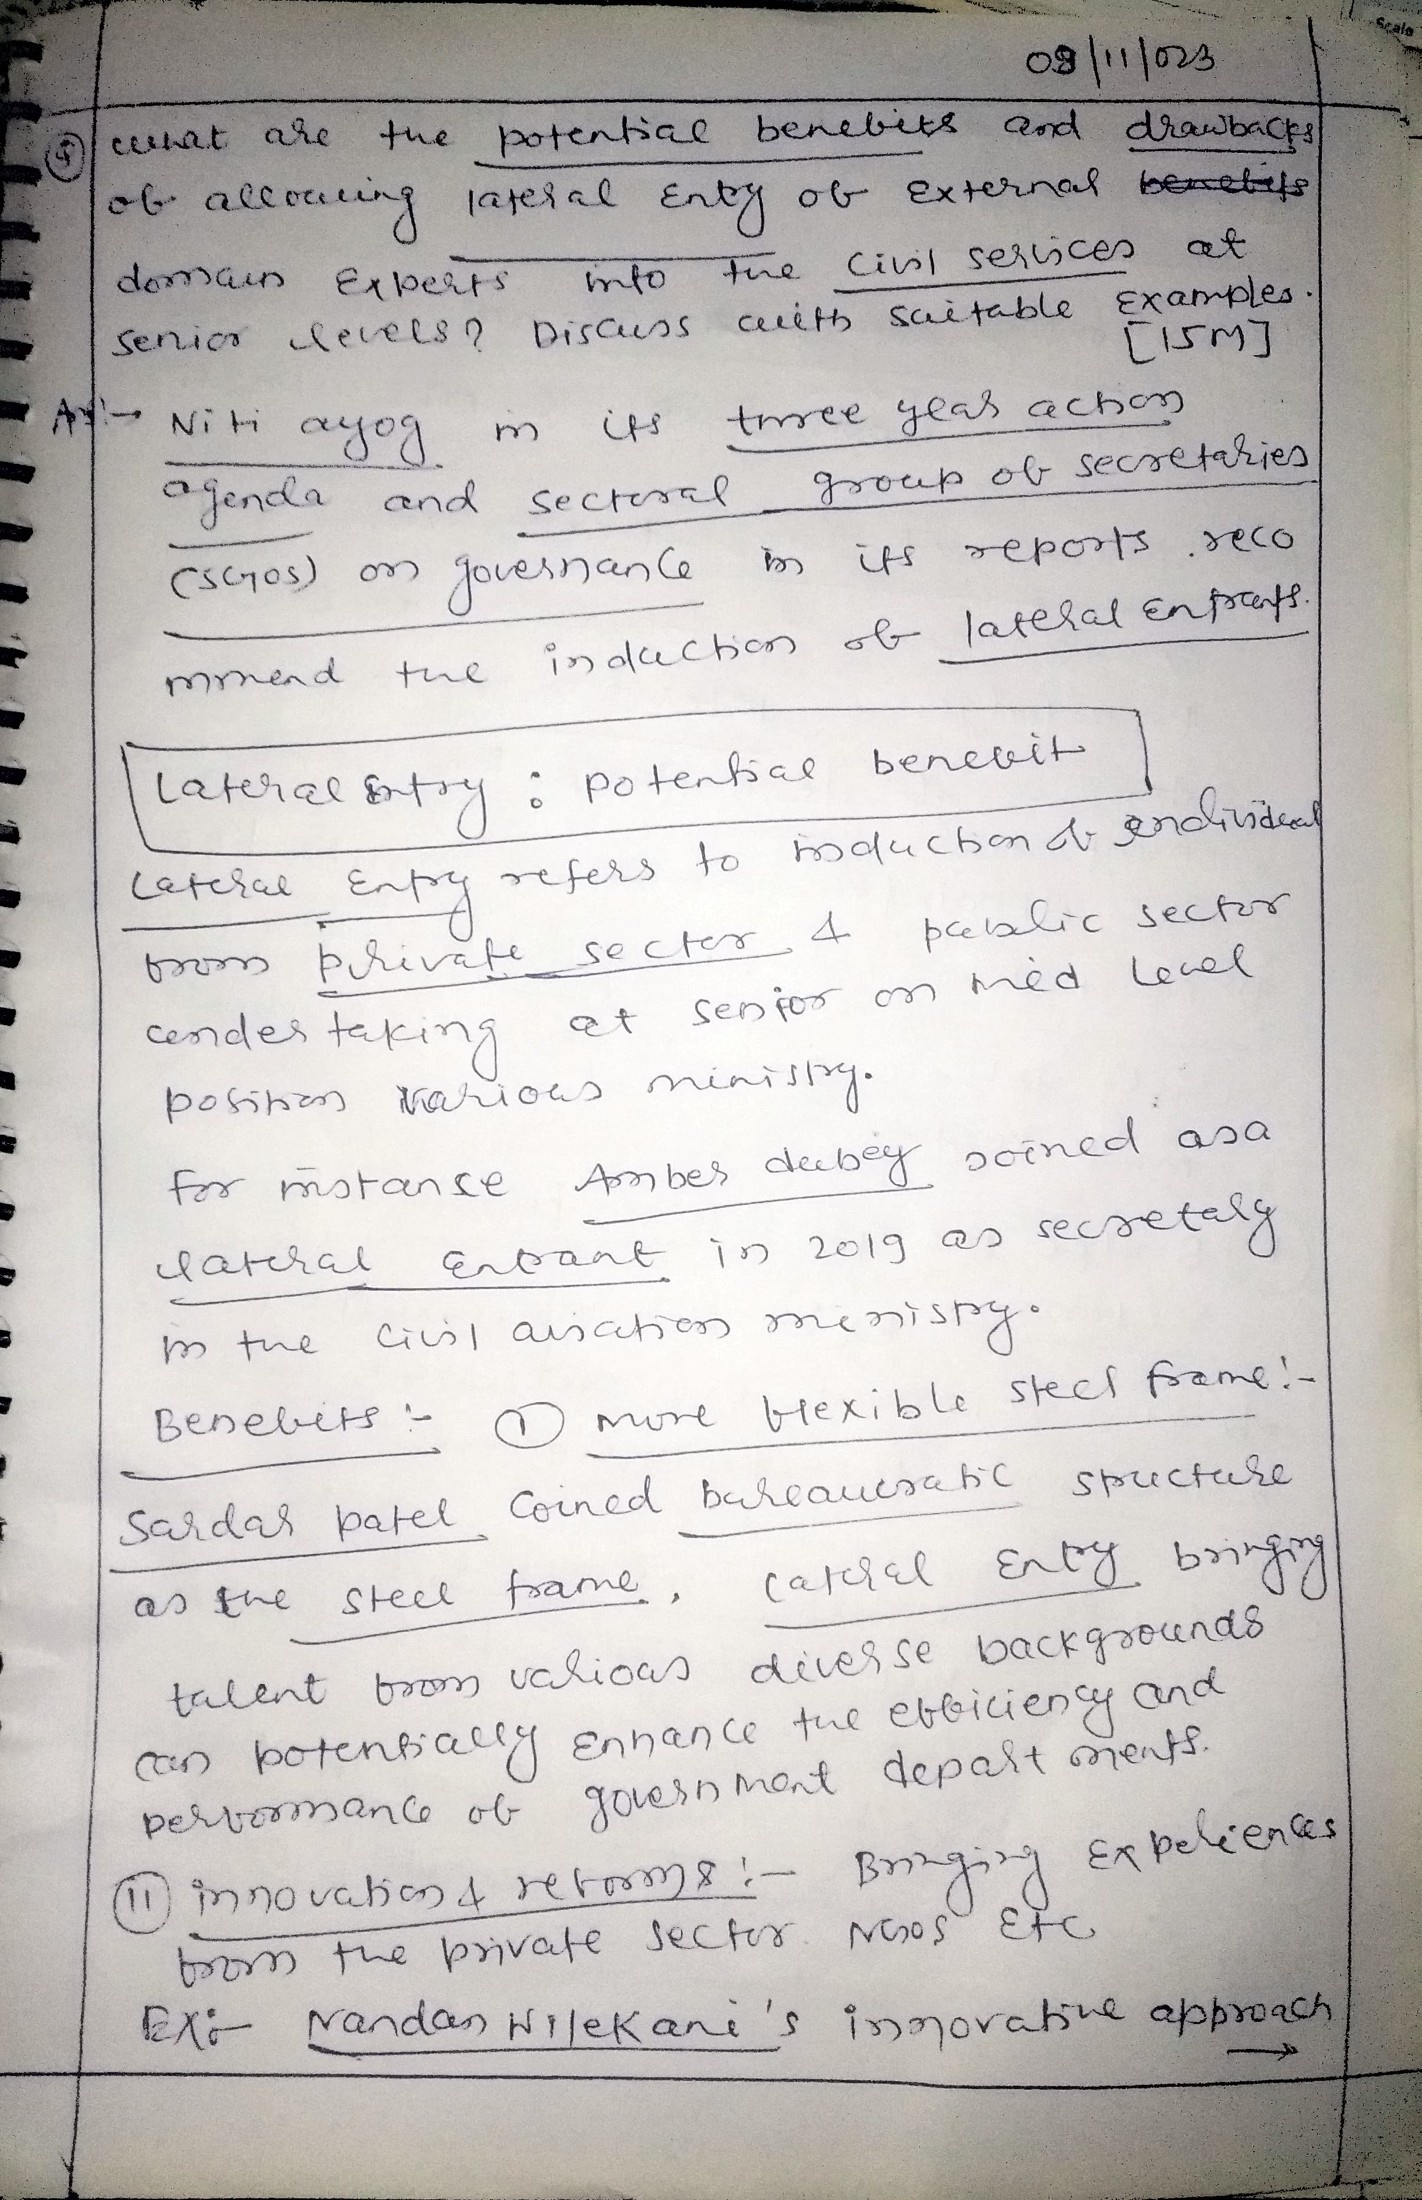 Scale
09/11/023
5 what are the potential benefits and drawbacks
of allowing lateral Entry of External benefits
domain Experts into the civil services at
senior levels? Discuss with suitable Examples.
[15M]
Ans:- Niti ayog in its three year action
agenda and sectoral group of secretaries
(SGOS) on governance in its reports reco
mmend the induction of lateral Entrants.
Lateral Entry : potential benefit
Lateral Entry refers to induction of individual
from private sector & public sector
under taking at senior on mid level
position various ministry.
for instanse Amber dubey joined as a
lateral Entrant in 2019 as secretary
in the civil aviation ministry.
Benefits :- (I) more flexible steel frame:-
Sardar patel coined bureaucratic structure
as the steel frame, lateral Entry bringing
talent from various diverse backgrounds
can potentially Enhance the efficiency and
performance of government depart ments.
(II) innovation & reforms :- Bringing Experiences
from the private sector NGOs Etc
EX:- Nandan Nilekani's innovative approach
→